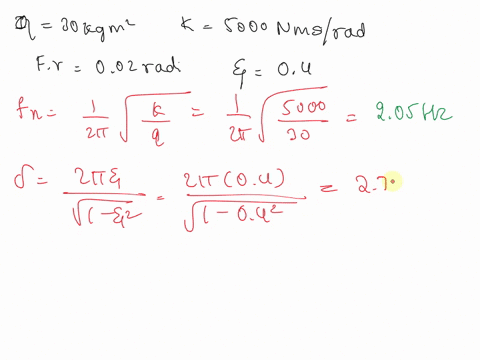 I = 30 kgm² K = 5000 Nms/rad
F.r = 0.02 rad ξ = 0.4
fn = 1/2π √(k/q) = 1/2π √(5000/30) = 2.05 Hz
δ = 2πξ/√(1-ξ²) = 2π(0.4)/√(1-0.4²) = 2.7